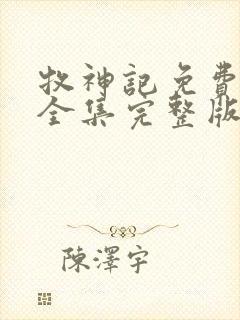 牧神記免費
全集完整版
陳澤宇